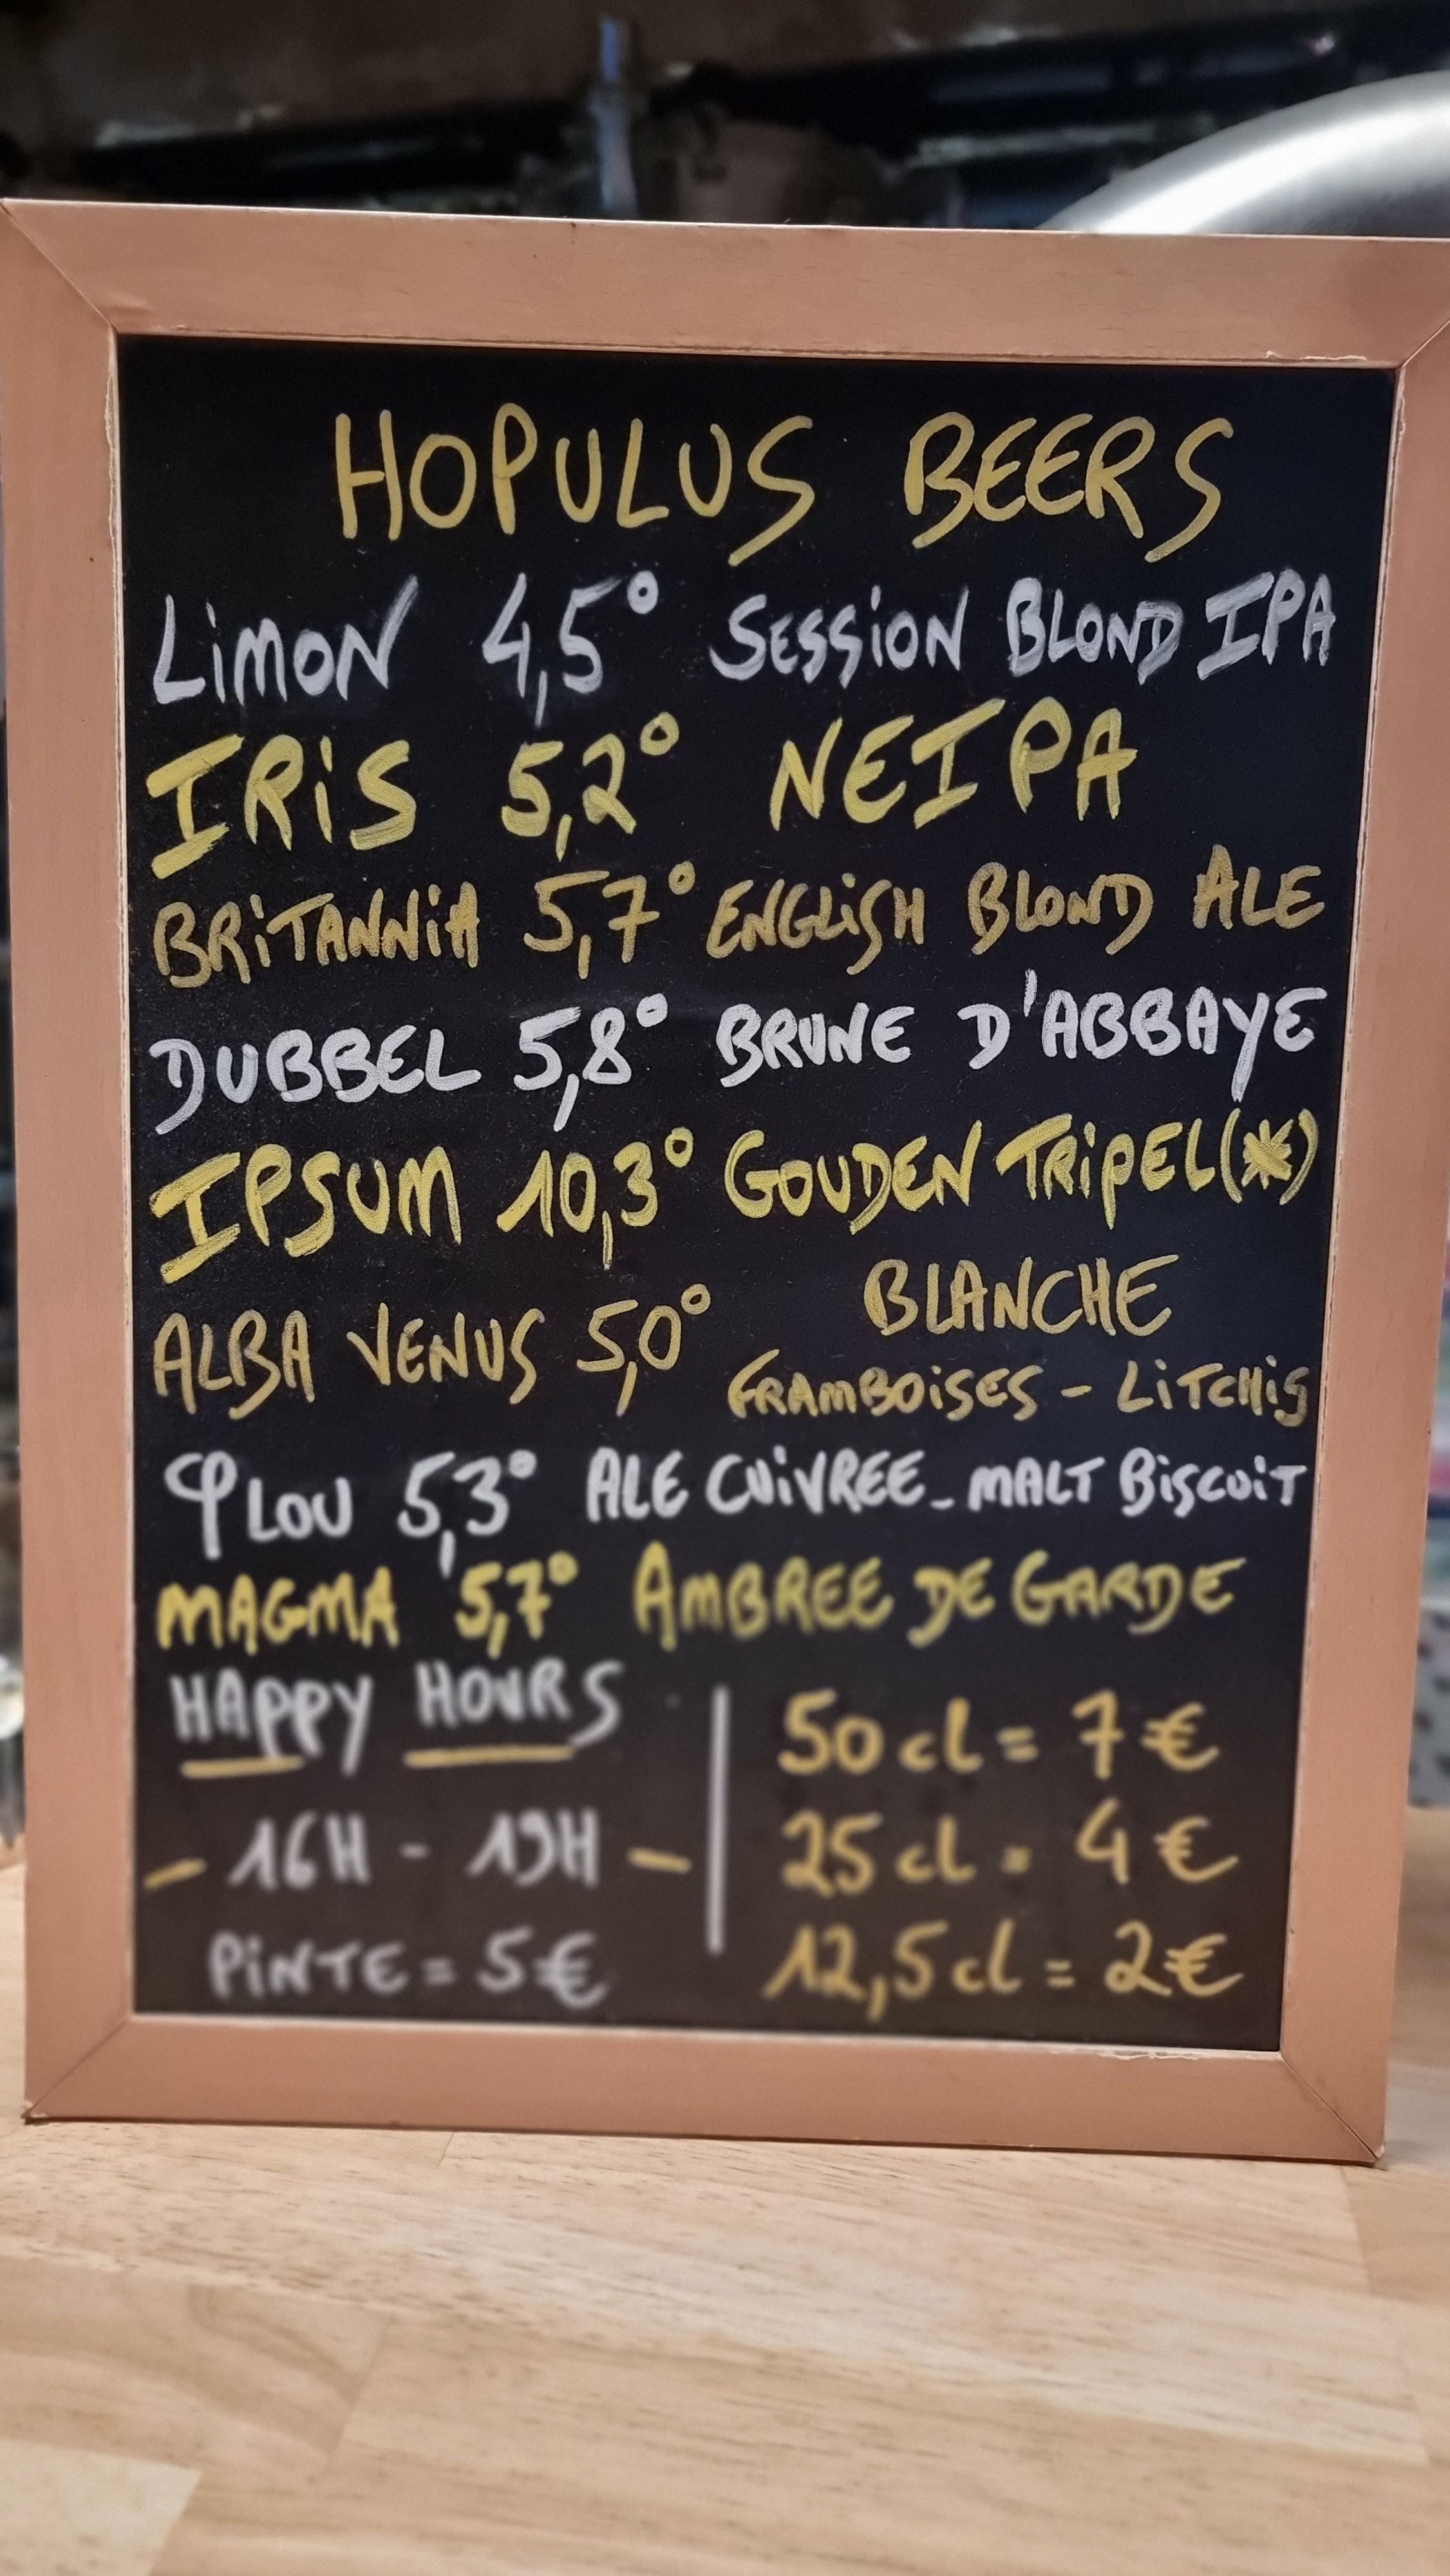 HOPULUS BEERS
LiMON 4,5° SESSiON BLOND IPA
IRiS 5,2° NEIPA
BRiTANNiA 5,7° ENGLiSH BLOND ALE
DUBBEL 5,8° BRUNE D'ABBAYE
IPSUM 10,3° GOUDEN TRiPEL(*)
ALBA VENUS 5,0° BLANCHE
FRAMBOiSES - LiTCHiS
φLOU 5,3° ALE CUiVREE - MALT BiSCUiT
MAGMA 5,7° AMBREE DE GARDE
HAPPY HOURS
- 16H - 19H -
PiNTE = 5€
50 cl = 7€
25 cl = 4€
12,5 cl = 2€